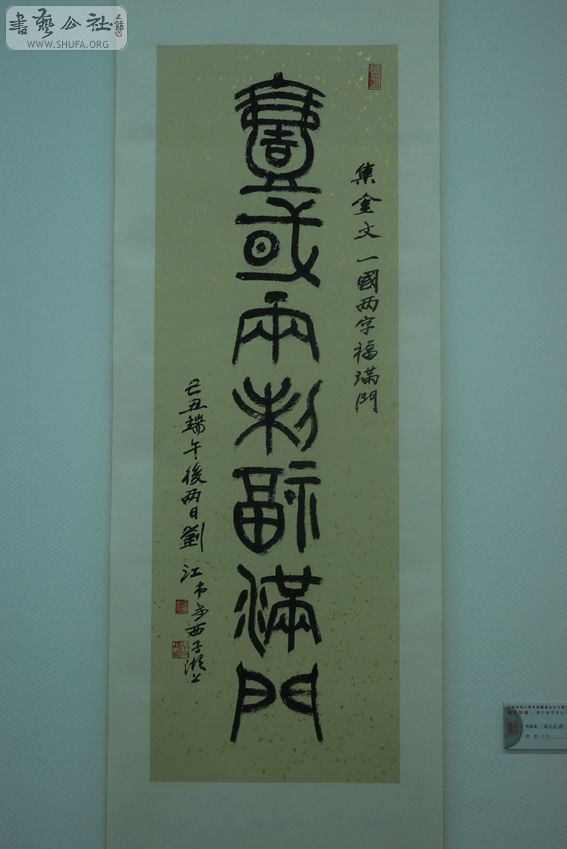 書藝公社
WWW.SHUFA.ORG
集金文一國两字福滿門
壹或兩制福滿門
己丑端午後两日劉江
西子湖上